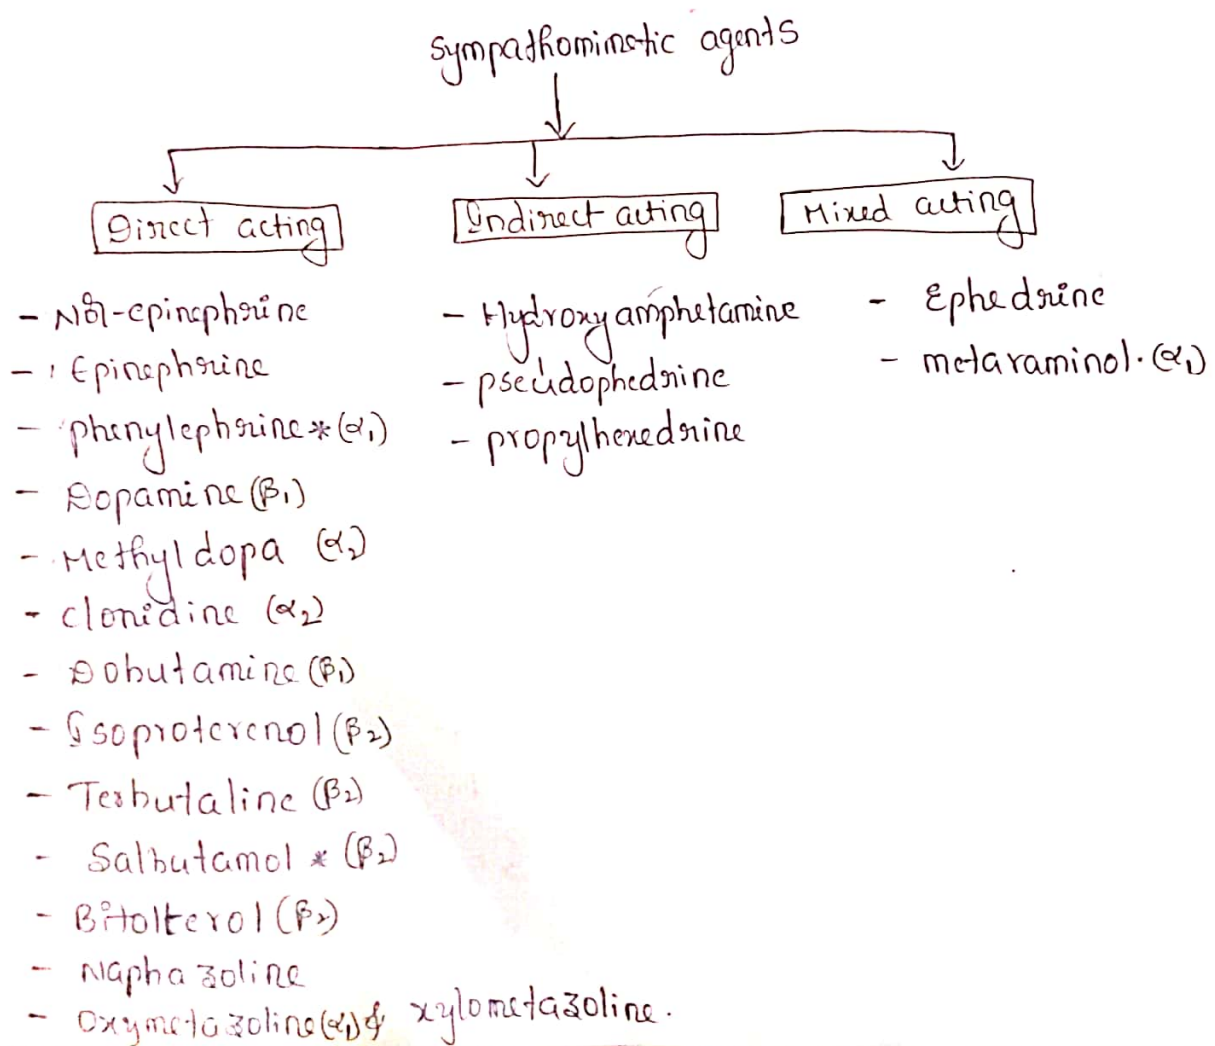 Sympathomimetic agents
Direct acting
Indirect acting
Mixed acting
- Nor-epinephrine
- Epinephrine
- phenylephrine * (α₁)
- Dopamine (β₁)
- Methyldopa (α₂)
- clonidine (α₂)
- Dobutamine (β₁)
- Isoproterenol (β₂)
- Terbutaline (β₂)
- Salbutamol * (β₂)
- Bitolterol (β₂)
- Naphazoline
- Oxymetazoline (α₁) & xylometazoline.
- Hydroxyamphetamine
- pseudophedrine
- propylhexedrine
- Ephedrine
- metaraminol. (α₁)